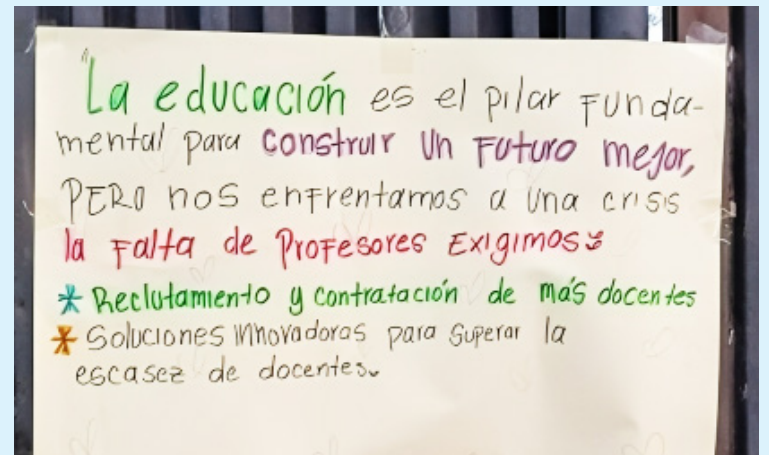 "La educación es el pilar Funda-
mental para construir un Futuro mejor,
PERO nos enfrentamos a una crisis
la Falta de Profesores Exigimos:
* Reclutamiento y contratación de más docentes
* Soluciones innovadoras para superar la
escasez de docentes.